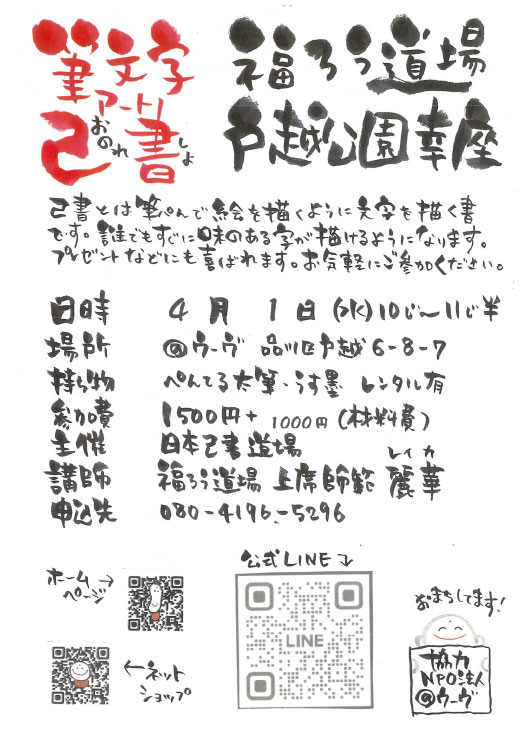 筆文字
アート!
己書
おのれ しょ
福ろう道場
戸越公園幸座
己書とは筆ぺんで絵を描くように文字を描く書
です。誰でもすぐに味のある字が描けるようになります。
プレゼントなどにも喜ばれます。お気軽にご参加ください。
日時 4月1日(水)10じ〜11じ半
場所 @ウーヴ 品川区戸越6-8-7
持ち物 ぺんてる太筆・うす墨 レンタル有
参加費 1500円+1000円(材料費)
主催 日本己書道場
レイカ
講師 福ろう道場 上席師範 麗華
申込先 080-4196-5296
公式LINE
ホーム
ページ
LINE
ネット
ショップ
おまちしてます!
協力
NPO法人
@ウーヴ